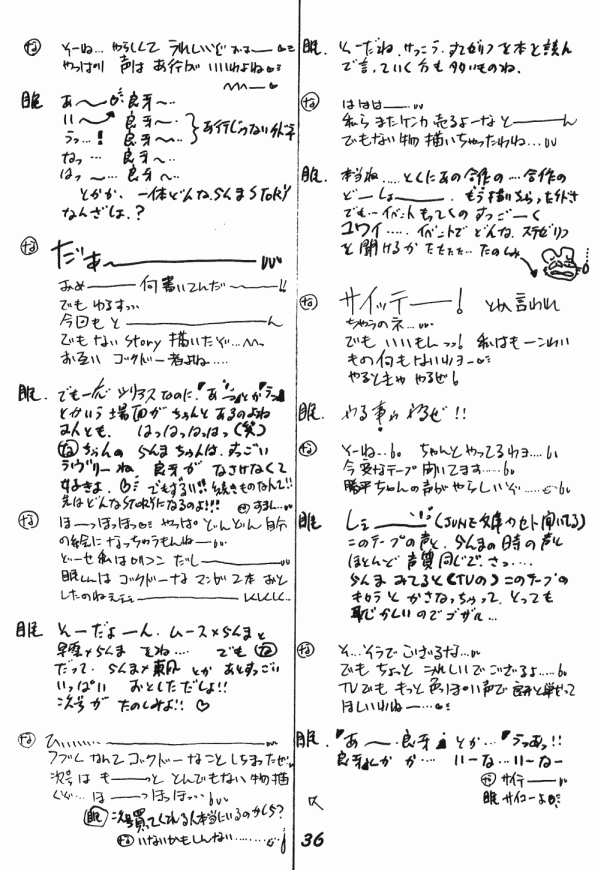 な そーね… やらしくて うれしいけど おぉ──
やっぱり 声は あ行が いいわよねー
眠 あ〜 良牙〜…
い〜 良牙〜…
うっ…! 良牙〜…
なっ… 良牙〜…
はっ〜… 良牙〜…
あ行じゃない
とかか、一体どんならんまSTORY
なんざしょ.?
な だぁ〜────
おぬ── 何書いてんだ〜──!!
でも ゆるすっ…
今回も と────────ん
でもない Story 描いたぞ…
お互い ゴクドー者よね….
眠. でも一応 シリアスなのに、「あっ」とか「うっ」
とかいう 場面が ちゃんと あるのよね
なんとも. はっはっはっはっ(笑)
なちゃんの らんまちゃんは、すっごい
ラヴリーね. 良牙が なさけなくて
好きよ. でもずるい!! 続きものなんて!!
先はどんなSTORYになるのよ!!! なすまん…
な ほーっほっほっ やっぱ どんどん 自分
の絵に なっちゃうもんねー
どーせ私はロリコン だしー────
眠くんは ゴクドーな マンガ 2本 おと
したのねぇぇぇ────
眠 そーだよーん. ムース×らんまと
早雲×らんま でね… でも な
だって. らんま×東風 とか あとすっごい
いっぱい おとしただしょ!!
次号が たのしみよ!! ♡
な ひぃぃぃ…────────
フフく なんて ゴクドーなこと しちまったぜ
次号は も──っと とんでもない物 描
くぞ… ほ──っほっほっ…
眠 次号買ってくれる人本当にいるのかしら?
な いないかもしんない………
眠. そーだね. けっこう. すてゼリフを本と読ん
で言っていく 方も 多いものね.
な ははは──…
私ら またケンカ売るよーな と────ん
でもない物 描いちゃったわね…
眠. 本当ね….. とくにあの合作の… 合作の
どーしょ────. もう描いちゃった
でも… イベントもってくの すっごーく
コワイ….. イベントで どんな. ステゼリフ
を 聞けるか たたたた… たのしみ
な サイッテ──! とか 言われ
ちゃうのネ…
でも いいもんっっ! 私はも一コわい
もの何もないわヨー
やるときゃ やるぜ!
眠. やる事は やるぜ!!
な そーね… ちゃんと やってるわヨ….
今 変なテープ 聞いてます…..
勝平ちゃんの声がやらしいぞ….
眠 しぇ────(JUNE文庫カセット聞いてる)
このテープの声と、らんまの時の声と
ほとんど 声質 同じで、さっ….
らんま みてると(TVの) このテープの
キャラと かさなっちゃって、とっても
恥ずかしいのでゴザル…
な そ…そうで ございるな…
でも ちょっと うれしいで ございるよ…..
TVでも もっと 色っぽい声で 良牙と
ほしいわねー…
眠. 「あ〜. 良牙」 とか… 「うっあっ!!
良牙」とか か…. いーな…いーなー
な サイテー──
眠 サイコーよ
36